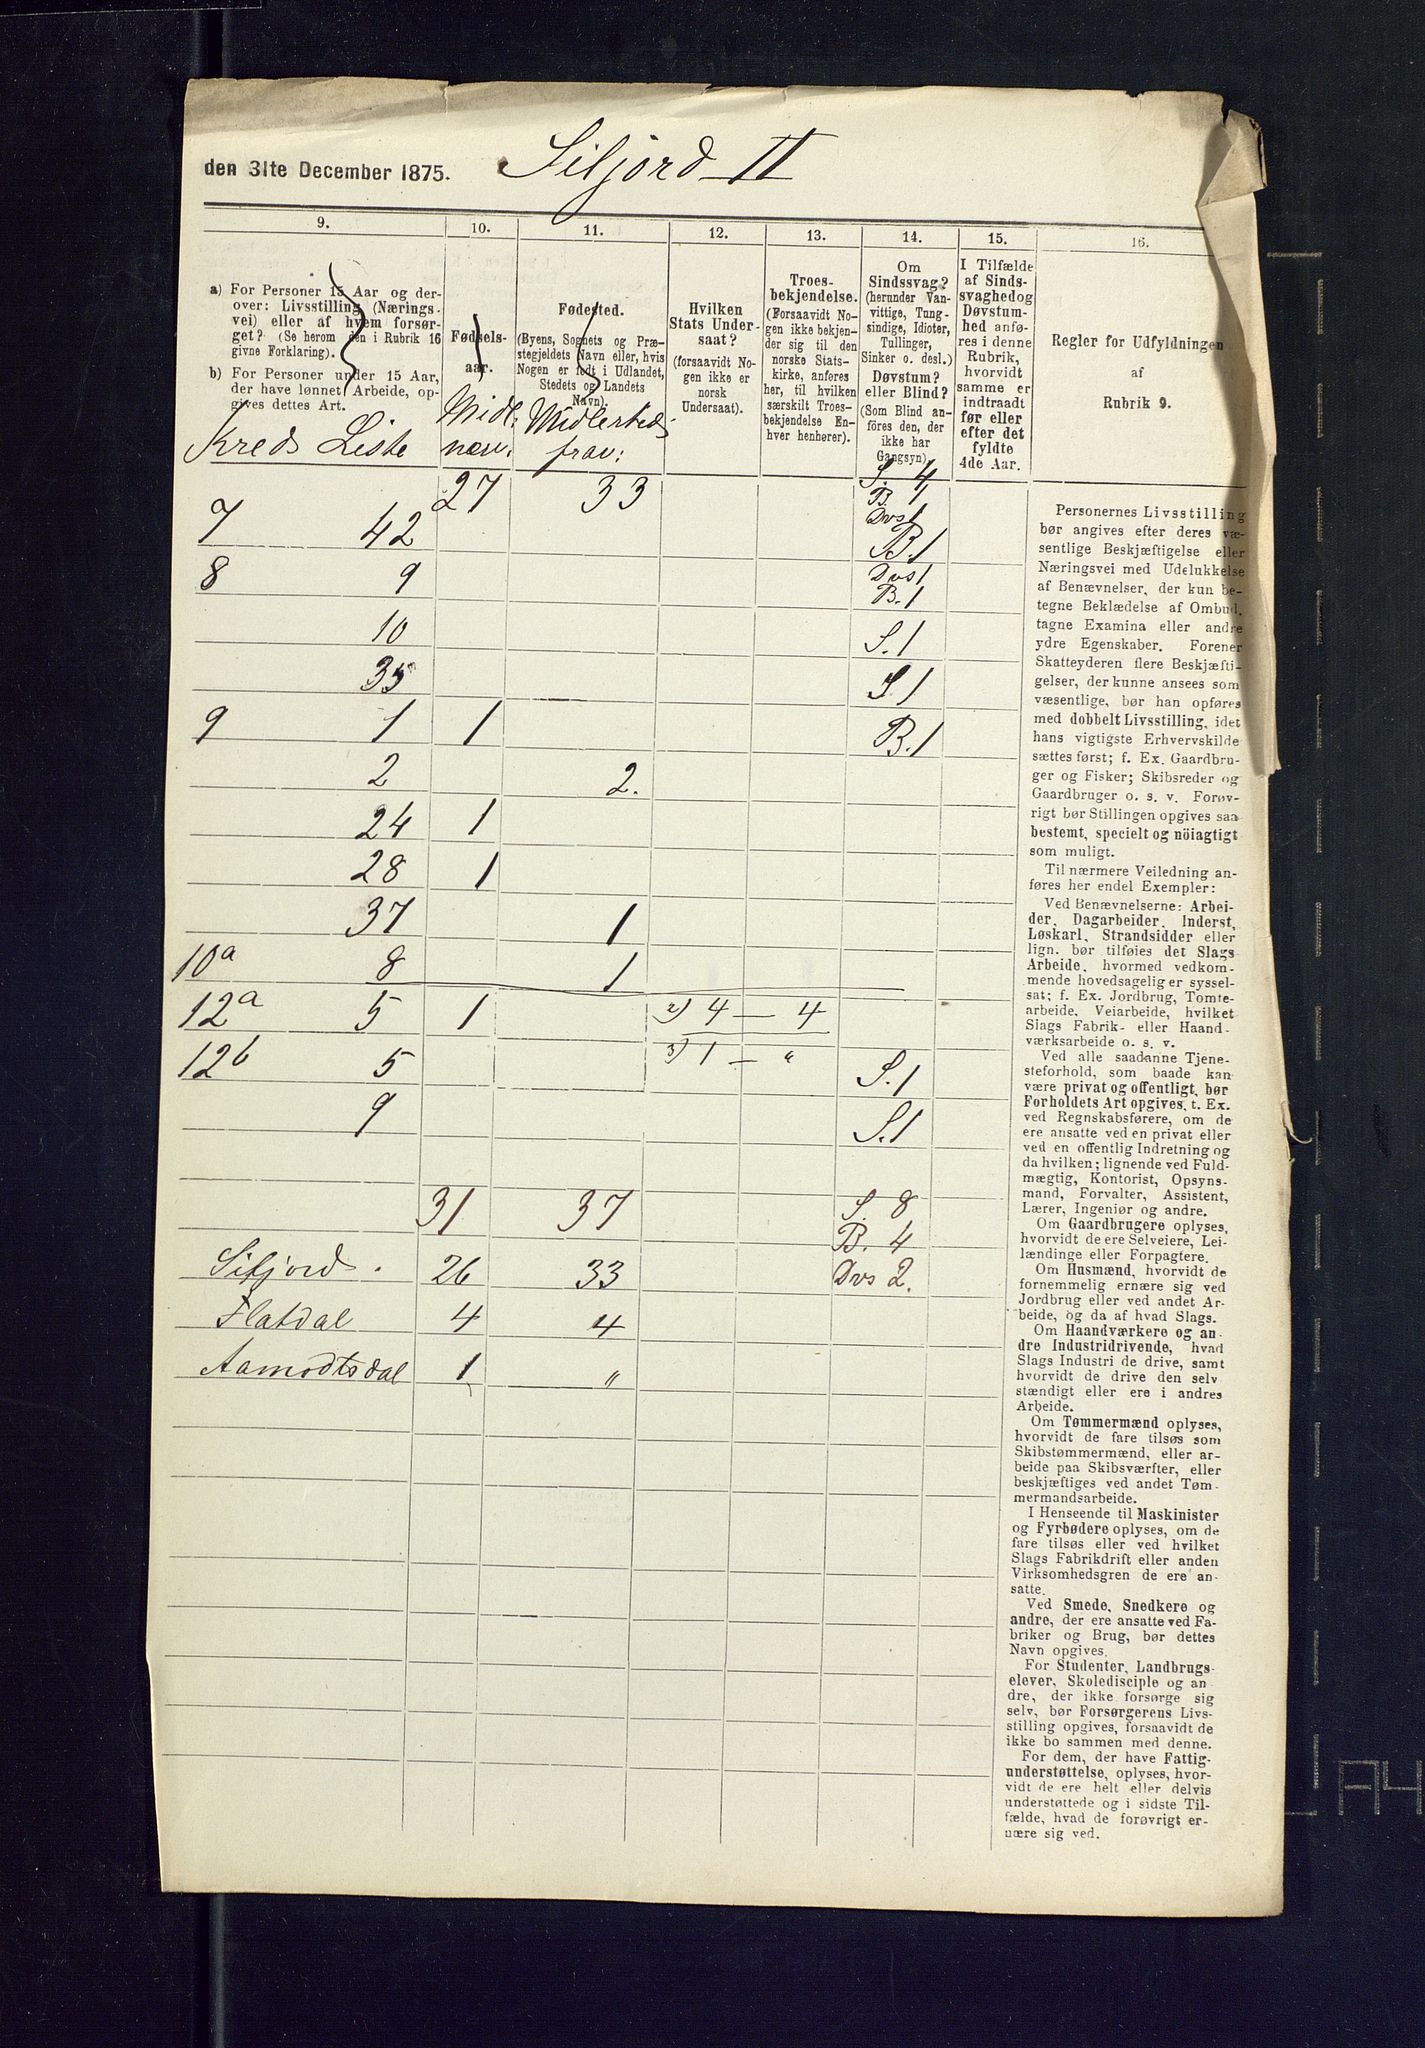 den 31te December 1875. Siljord II
9. 10. 11. 12. 13. 14. 15. 16.
a) For Personer 15 Aar og der-
over: Livsstilling (Nærings-
vei) eller af hvem forsør-
get? (Se herom den i Rubrik 16
givne Forklaring).
b) For Personer under 15 Aar,
der have lønnet Arbeide, op-
gives dettes Art.
Fødsels-
aar.
Fødested.
(Byens, Sognets og Præ-
stegjeldets Navn eller, hvis
Nogen er født i Udlandet,
Stedets og Landets
Navn).
Hvilken
Stats Under-
saat?
(forsaavidt No-
gen ikke er
norsk
Undersaat).
Troes-
bekjendelse.
(Forsaavidt No-
gen ikke bekjen-
der sig til den
norske Stats-
kirke, anføres
her, til hvilken
særskilt Troes-
bekjendelse En-
hver henhører).
Om
Sindssvag?
(herunder Van-
vittige, Tung-
sindige, Idioter,
Tullinger,
Sinker o. desl.)
Døvstum?
eller Blind?
(Som Blind an-
føres den, der
ikke har
Gangsyn).
I Tilfælde
af Sinds-
svaghed og
Døvstum-
hed anfø-
res i denne
Rubrik,
hvorvidt
samme er
indtraadt
før eller
efter det
fyldte
4de Aar.
Regler for Udfyldningen
af
Rubrik 9.
Kreds Liste Midl: nær: Midlertid: frav:
27 33 S. 4
B. 1
Dvs 1
7 42 B. 1
8 9 Dvs 1
B. 1
10 S. 1
35 S. 1
9 1 1 B. 1
2 2.
24 1
28 1
37 1
10a 8 1
12a 5 1 2) 4 — 4
12b 5 3) 1 — " S. 1
9 S. 1
31 37 S. 8
B. 4
Siljord. 26 33 Dvs 2.
Flatdal 4 4
Aamodtsdal 1 "
Personernes Livsstilling
bør angives efter deres væ-
sentlige Beskjæftigelse eller
Næringsvei med Udelukkelse
af Benævnelser, der kun be-
tegne Beklædelse af Ombud,
tagne Examina eller andre
ydre Egenskaber. Forener
Skatteyderen flere Beskjæfti-
gelser, der kunne ansees som
væsentlige, bør han opføres
med dobbelt Livsstilling, idet
hans vigtigste Erhvervskilde
sættes først; f. Ex. Gaardbru-
ger og Fisker; Skibsreder og
Gaardbruger o. s. v. Forøv-
rigt bør Stillingen opgives saa
bestemt, specielt og nöiagtigt
som muligt.
Til nærmere Veiledning an-
føres her endel Exempler:
Ved Benævnelserne: Arbei-
der, Dagarbeider, Inderst,
Løskarl, Strandsidder eller
lign. bør tilføies det Slags
Arbeide, hvormed vedkom-
mende hovedsagelig er syssel-
sat; f. Ex. Jordbrug, Tomte-
arbeide, Veiarbeide, hvilket
Slags Fabrik- eller Haand-
værksarbeide o. s. v.
Ved alle saadanne Tjene-
steforhold, som baade kan
være privat og offentligt, bør
Forholdets Art opgives, t. Ex.
ved Regnskabsførere, om de
ere ansatte ved en privat eller
ved en offentlig Indretning og
da hvilken; lignende ved Fuld-
mægtig, Kontorist, Opsyns-
mand, Forvalter, Assistent,
Lærer, Ingeniør og andre.
Om Gaardbrugere oplyses,
hvorvidt de ere Selveiere, Lei-
lændinge eller Forpagtere.
Om Husmænd, hvorvidt de
fornemmelig ernære sig ved
Jordbrug eller ved andet Ar-
beide, og da af hvad Slags.
Om Haandværkere og an-
dre Industridrivende, hvad
Slags Industri de drive, samt
hvorvidt de drive den selv-
stændigt eller ere i andres
Arbeide.
Om Tømmermænd oplyses,
hvorvidt de fare tilsøs som
Skibstømmermænd, eller ar-
beide paa Skibsværfter, eller
beskjæftiges ved andet Tøm-
mermandsarbeide.
I Henseende til Maskinister
og Fyrbødere oplyses, om de
fare tilsøs eller ved hvilket
Slags Fabrikdrift eller anden
Virksomhedsgren de ere an-
satte.
Ved Smede, Snedkere og
andre, der ere ansatte ved Fa-
briker og Brug, bør dettes
Navn opgives.
For Studenter, Landbrugs-
elever, Skoledisciple og an-
dre, der ikke forsørge sig
selv, bør Forsørgerens Livs-
stilling opgives, forsaavidt de
ikke bo sammen med denne.
For dem, der have Fattig-
understøttelse, oplyses, hvor-
vidt de ere helt eller delvis
understøttede og i sidste Til-
fælde, hvad de forøvrigt er-
nære sig ved.
A4